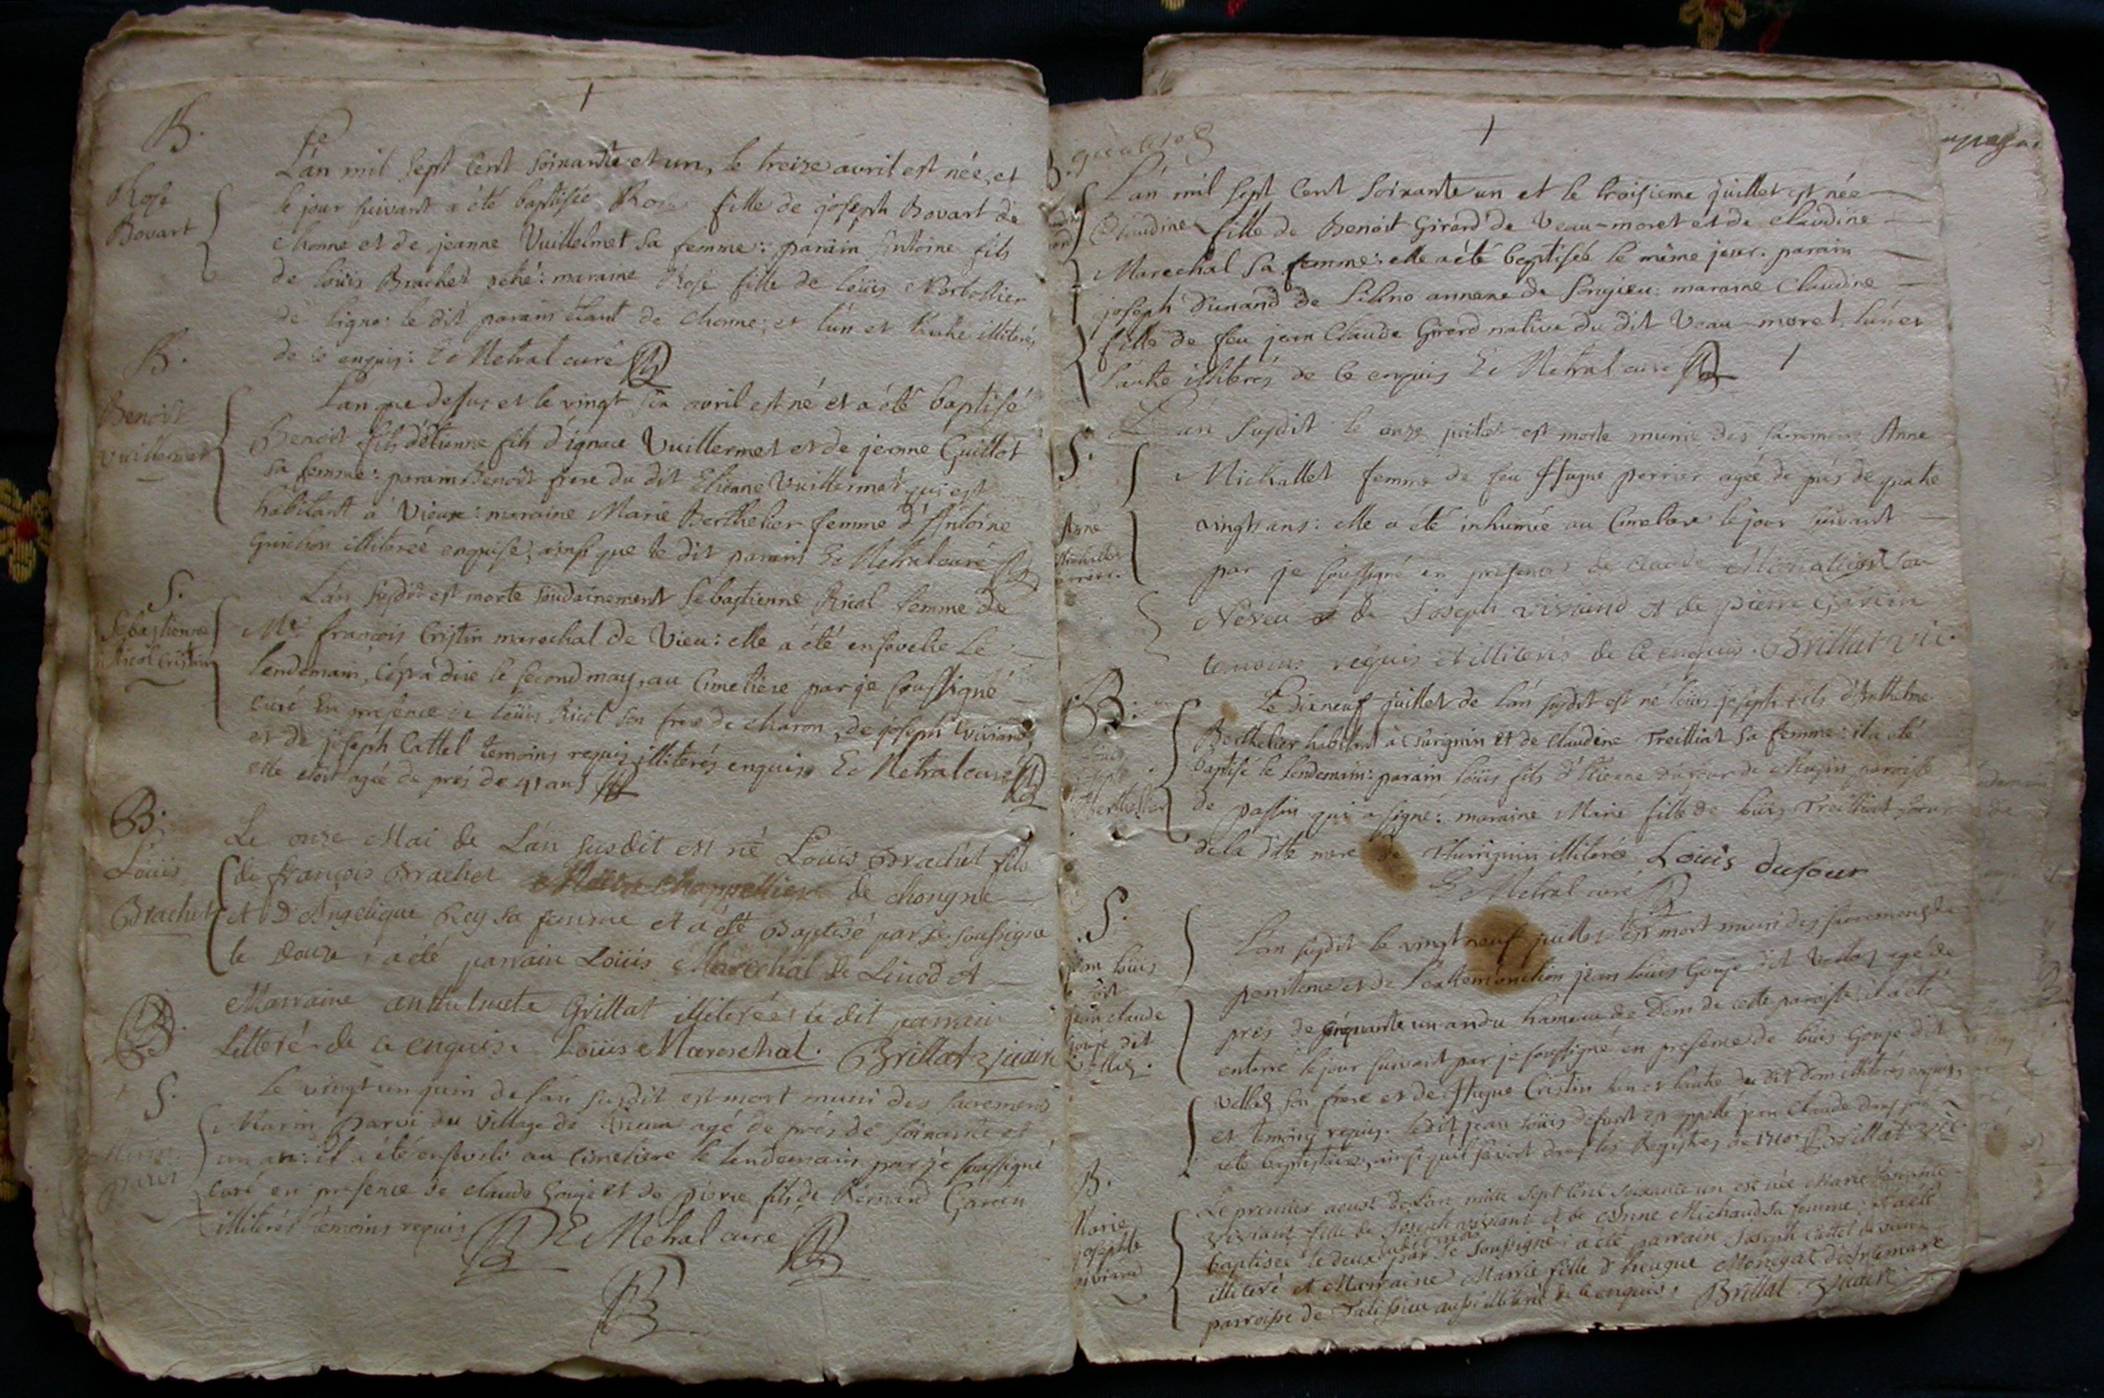 B.
Rose
Bovart
L'an mil sept cent soixante et un, le treize avril est née, et
le jour suivant a été baptisée Rose fille de joseph Bovart de
chonne et de jeanne Vuillelmet sa femme: parain Antoine fils
de loüis Brachet : maraine Rose fille de loüis
de ligno: le dit parain étant de chonne; et l'un et l'autre illiterés
de ce enquis: E Metral curé
B.
Benoit
Vuillermet
L'an que dessus et le vingt six avril est né et a été baptisé
Benoit fils d'étienne fils d'ignace Vuillermet et de jeanne Guillot
sa femme: parain Benoit frere du dit Etienne Vuillermet qui est
habitant à Vieux: maraine Marie Berthelier femme d'Antoine
illiterée enquise, ainsi que le dit parain E Metral curé
S.
Sebastienne
Ricol Cristin
L'an susdit est morte soudainement Sebastienne Ricol femme de
Me. françois Cristin marechal de Vieu: elle a été ensevelie le
lendemain, c'est à dire le second may, au Cimetiere par je soussigné
curé En presence de loüis Ricol son frere de charon, de joseph Viviand,
et de joseph Cattel temoins requis illiterés enquis E Metral curé
elle etoit agée de prés de 41 ans
B.
Loüis
Brachet
Le onze Mai de L'an susdit est né Loüis Brachet fils
de françois Brachet de chongne
et D'Angelique Rey sa femme et a été Baptisé par je soussigné
le douze; a été parrain Loüis Marechal de Linod et
Marraine Grillat illiterée le dit parrain
Litteré de ce enquis. Loüis Mareschal. Brillat vicaire
S.
Marin
parvi
Le vingt un juin de l'an susdit est mort muni des sacremens
Marin Parvi du village de agé de prés de soixante et
un an: il a été enseveli au cimetiere le lendemain par je soussigné
curé en presence de claude Gouje et de pierre fils de Bernard Garin
illiterés temoins requis E Metral curé
B.
L'an mil sept cent soixante un et le troisieme juillet est née
Claudine fille de Benoit Girard de Veau-moret et de claudine
Marechal sa femme: elle a été baptisée le même jour. parain
joseph Dunand de annexe de Songieu: maraine Claudine
fille de feu jean Claude Girard native du dit Veau-moret, l'un et
l'autre illiterés de ce enquis E Metral curé
S.
Anne
Michallet
L'an susdit le onze juillet est morte munie des sacremens Anne
Michallet femme de feu Hugue perrier agée de prés de quatre
vingts ans: elle a été inhumée au Cimetiere le jour suivant
par je soussigné en presence de claude Michallet son
Neveu de Joseph Viviand et de pierre Garin
temoins requis et illiterés de ce enquis. Brillat vic.
B.
Louis
Joseph
Berthelier
Le dixneuf juillet de l'an susdit est né loüis joseph fils d'Anthelme
Berthelier habitant à et de claudine Treilliat sa femme: il a été
baptisé le lendemain: parain loüis fils d'Etienne Dufour de paroisse
de passin qui a signé: maraine Marie fille de loüis Treilliat soeur
de la dite mere de illiterée Loüis dufour
E Metral curé
S.
jean loüis
dit
jean claude
gouje dit
L'an susdit le vingt neuf juillet est mort muni des sacremens de
penitence et de l'extremonction jean loüis Gouje dit agé de
près de cinquante un an du hameau de Dom de cette paroisse: il a été
enterré le jour suivant par je soussigné en presence de loüis Gouje dit
son frere et de Hugue Cristin l'un et l'autre du dit dom illiterés enquis,
et temoins requis. le dit jean loüis defunt est appellé jean claude dans son
acte baptistaire, ainsi qu'il se voit dans les Registres de 1710. Brillat vic
B.
Marie
josephte
viviand
Le premier aoust de L'an mille sept cent soixante un est née Marie Josephte
viviand fille de Joseph viviant et de Anne Michaud sa femme; et a été
baptisée le deux par je soussigné; a été parrain Joseph Cattel de vieu
illiteré et Marraine Marie fille d'hugue
parroisse de Talissieu aussi illiterée de ce enquis. Brillat vicaire